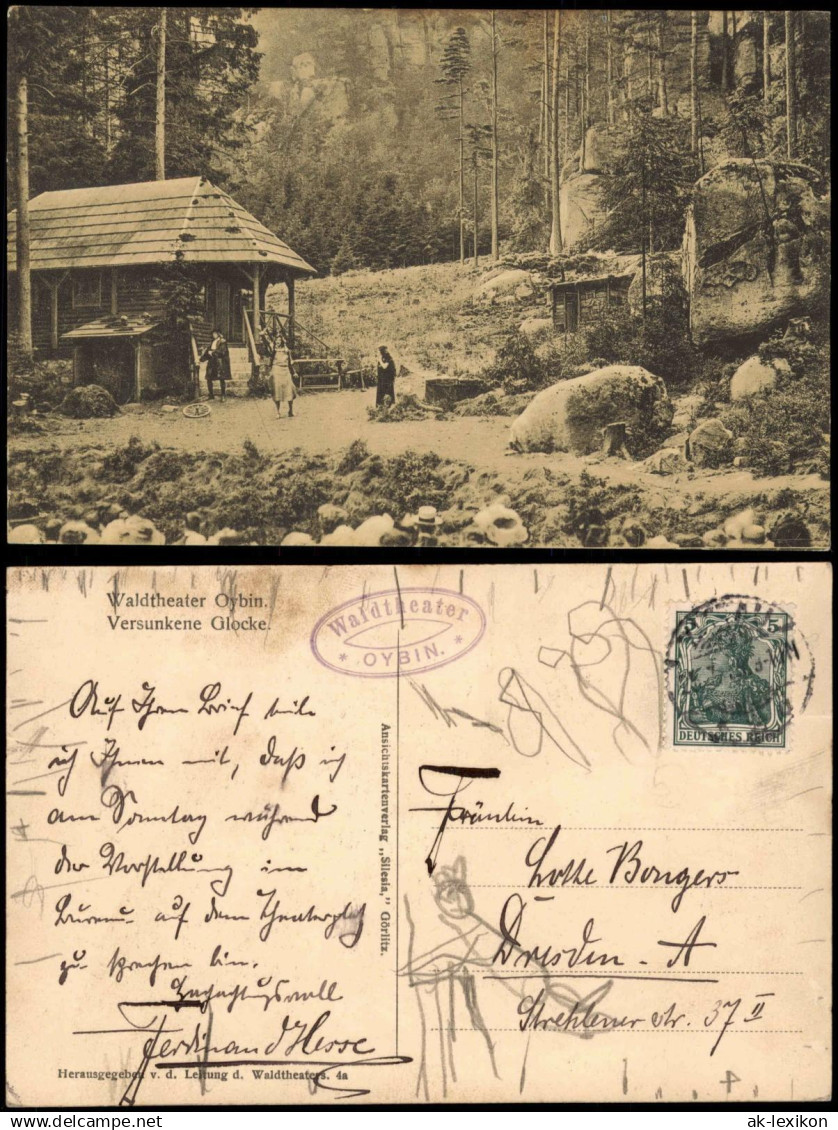 Waldtheater Oybin.
Versunkene Glocke.
Waldtheater
* OYBIN. *
5
DEUTSCHES REICH
Auf Ihren Brief teile
ich Ihnen mit, daß ich
am Sonntag während
der Vorstellung im
Bureau auf dem Theaterplatz
zu sprechen bin.
Hochachtungsvoll
Ferdinand Hesse
Ansichtskartenverlag „Silesia," Görlitz.
Fräulein
Lotte Bongers
Dresden-A
Strehlener str. 37 II
Herausgegeben v. d. Leitung d. Waldtheaters. 4a
© ak-lexikon